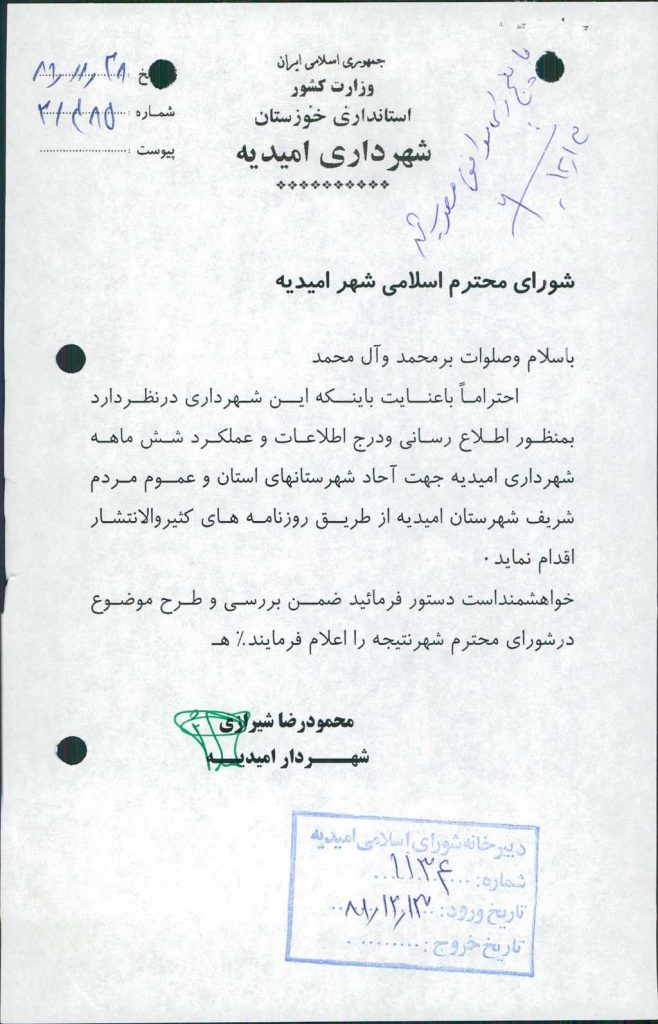 جمهوری اسلامی ایران
وزارت کشور
استانداری خوزستان
شهرداری امیدیه
خ
شماره :
پیوست :
با پنج رای موافق تصویب شد
شورای محترم اسلامی شهر امیدیه
باسلام وصلوات برمحمد وآل محمد
احتراماً باعنایت باینکه این شهرداری درنظردارد
بمنظور اطلاع رسانی ودرج اطلاعات و عملکرد شش ماهه
شهرداری امیدیه جهت آحاد شهرستانهای استان و عموم مردم
شریف شهرستان امیدیه از طریق روزنامه های کثیروالانتشار
اقدام نماید .
خواهشمنداست دستور فرمائید ضمن بررسی و طرح موضوع
درشورای محترم شهرنتیجه را اعلام فرمایند.٪ هـ
محمودرضا شیرازی
شهردار امیدیه
دبیرخانه شورای اسلامی امیدیه
شماره: ۱۱۳۴
تاریخ ورود:
تاریخ خروج :